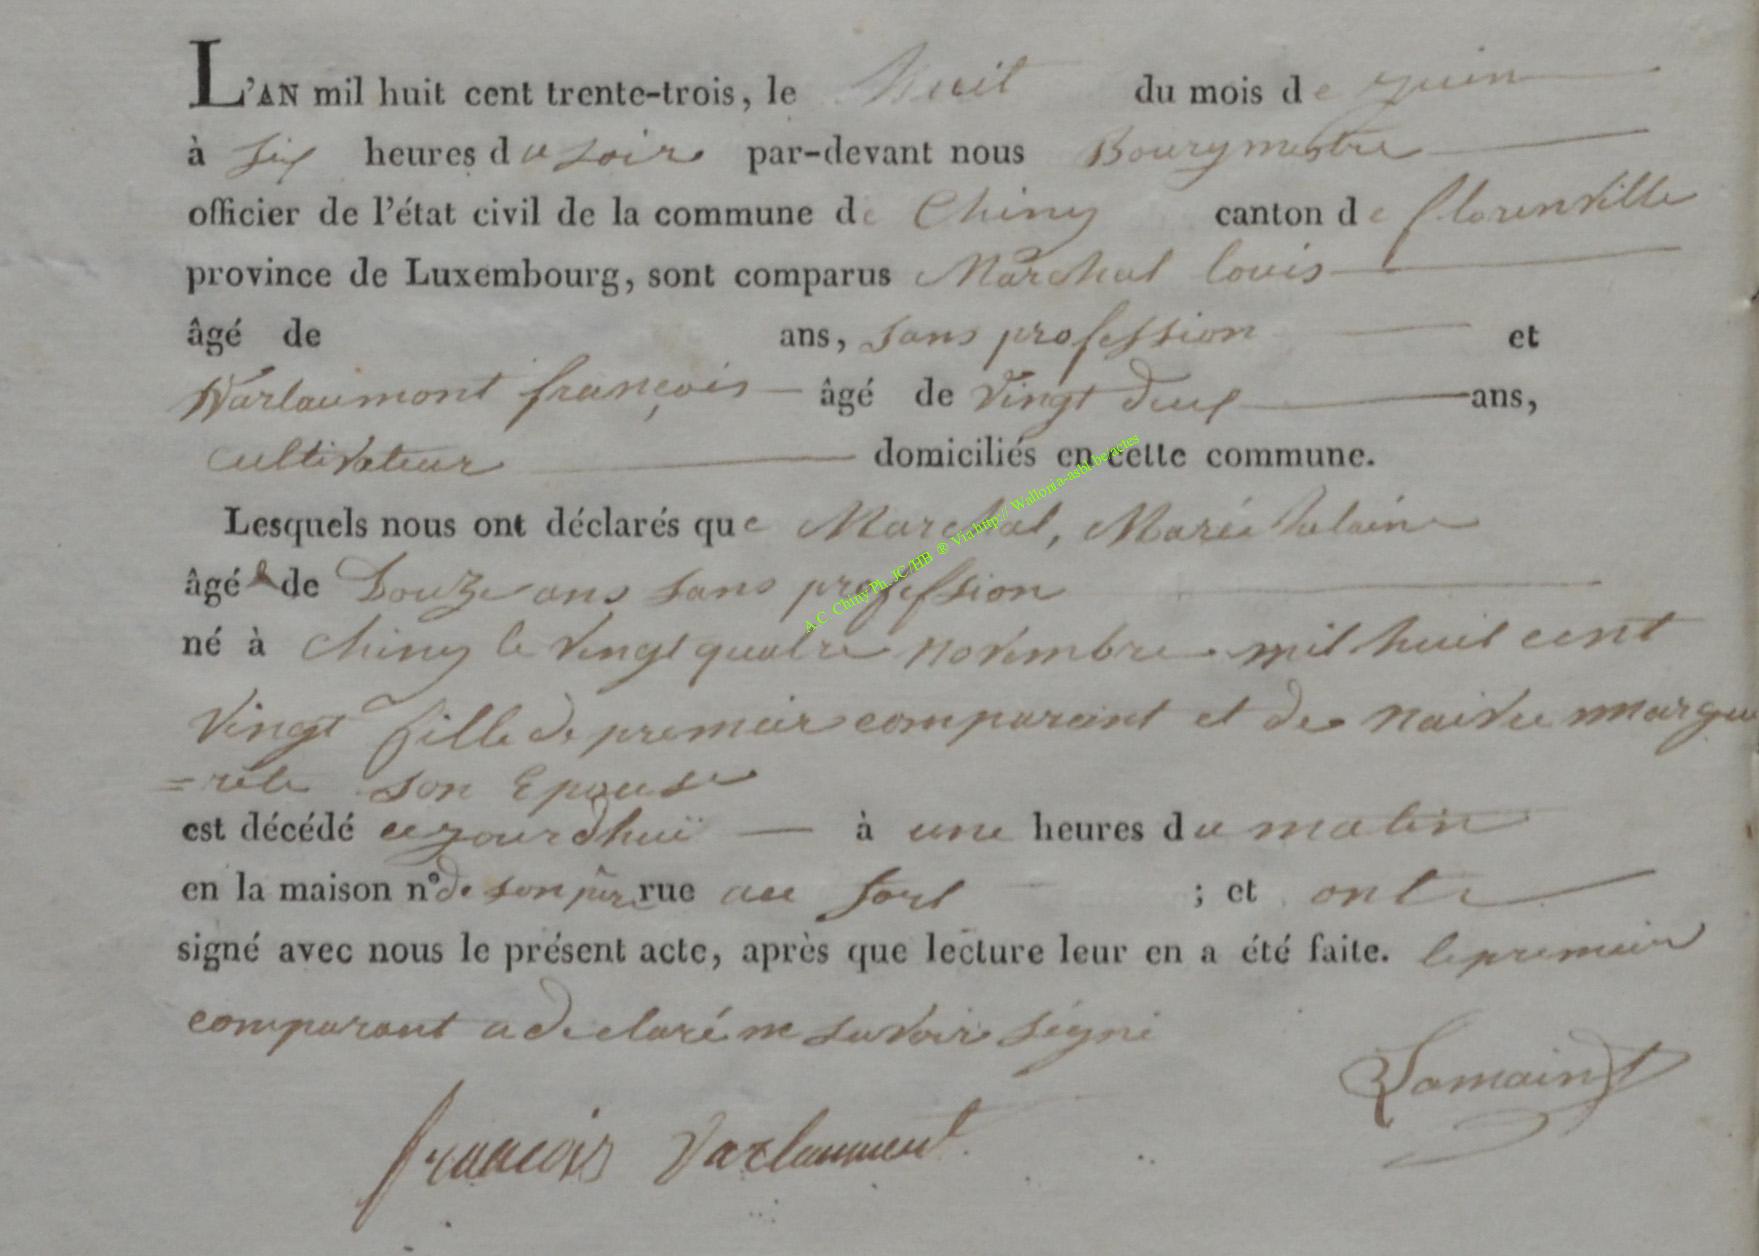 L'AN mil huit cent trente-trois, le huit du mois de juin
à six heures du soir par-devant nous Bourgmestre
officier de l'état civil de la commune de Chiny canton de florenville
province de Luxembourg, sont comparus Marchal louis
âgé de ans, sans profession et
Warlaumont françois âgé de vingt deux ans,
cultivateur domiciliés en cette commune.
Lesquels nous ont déclarés que Marchal, Marie
âgée de Douze ans sans profession
né à chiny le vingt quatre novembre mil huit cent
vingt fille de premier comparant et de margue
=rete son Epouse
est décédé cejourdhuï à une heures du matin
en la maison n° de son père rue au fort ; et ont
signé avec nous le présent acte, après que lecture leur en a été faite. le premier
comparant a declaré ne savoir signé
françois Varlaumont
A.C. Chiny Ph. JC/HB ® Via http:// Wallonia-asbl.be/actes